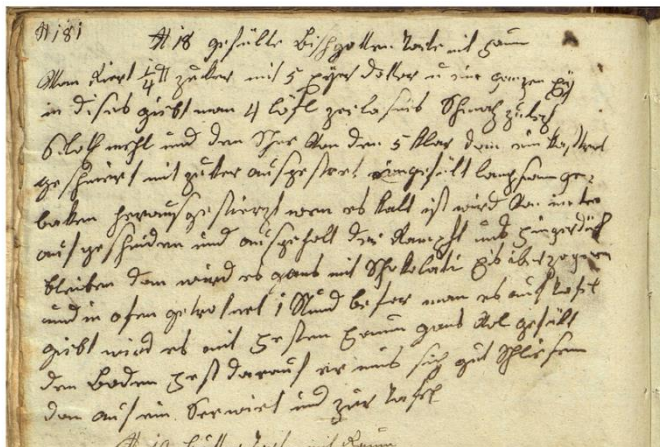 N 181
N 18 gefülte Bischgotten Torte mit Faum
Man Riert 1/4 ℔ zuker mit 5 eÿer dotter u ein ganzen eÿ
in dises giebt man 4 löfl zerlasnes Schmalz zulezt
6 loth mehl und den Schne von den 5 klar dan ein
geschmiert mit zuker ausgestreet eingefült langsam ge=
baken herausgestierzt wen es kalt ist wird von unten
aufgeschniden und ausgeholt der Rampft mus fingerdik
bleiben dan wird es ganz mit Schokolati eis überzogen
und in ofen getroknet 1 Stund befor man es auf tafel
giebt wird es mit festen Faum ganz vol gefült
den Boden fest darauf er mus sich gut Schliesen
dan auf ein Serwiet und zur Tafel